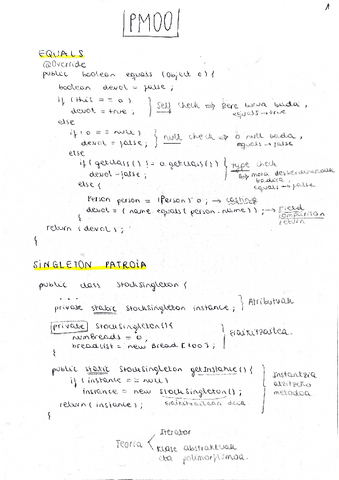 1
PMOO
EQUALS
@Override
public boolean equals (Object o) {
boolean devol = false;
if (this == o) } self check ⇒ bere bera bada,
devol = true; equals → true
else
if (o == null) } null check ⇒ o null bada,
devol = false; equals → false
else
if (getClass() != o.getClass()) } type check
devol = false; ⇒ mota desberdinekoak badira,
else { equals → false
Person person = (Person) o; → casting
devol = (name.equals(person.name)); → field comparison
} return
return (devol);
}
SINGLETON PATROIA
public class StockSingleton {
...
private static StockSingleton instance; } Atributuak
private StockSingleton() {
numBreads = 0; } Eraikitzailea.
breadList = new Bread [100];
}
public static StockSingleton getInstance() { Instantzia
if (instance == null) atzitzeko
instance = new StockSingleton(); metodoa
return (instance); eraikitzaileari deia
}
Teoria < Iterator
Klase abstraktuak
eta polimorfismoa.